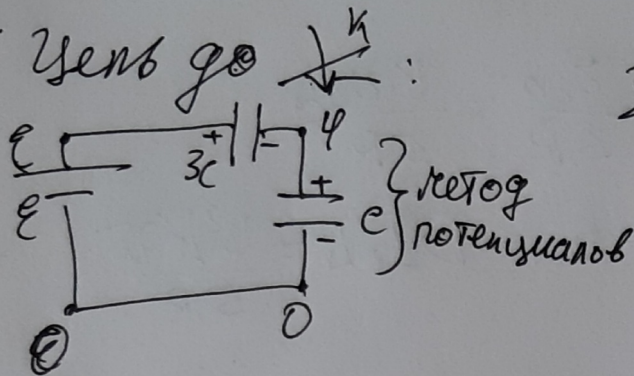 Цепь до K :
ℰ + - φ
3C
ℰ + C } метод
- потенциалов
0 0